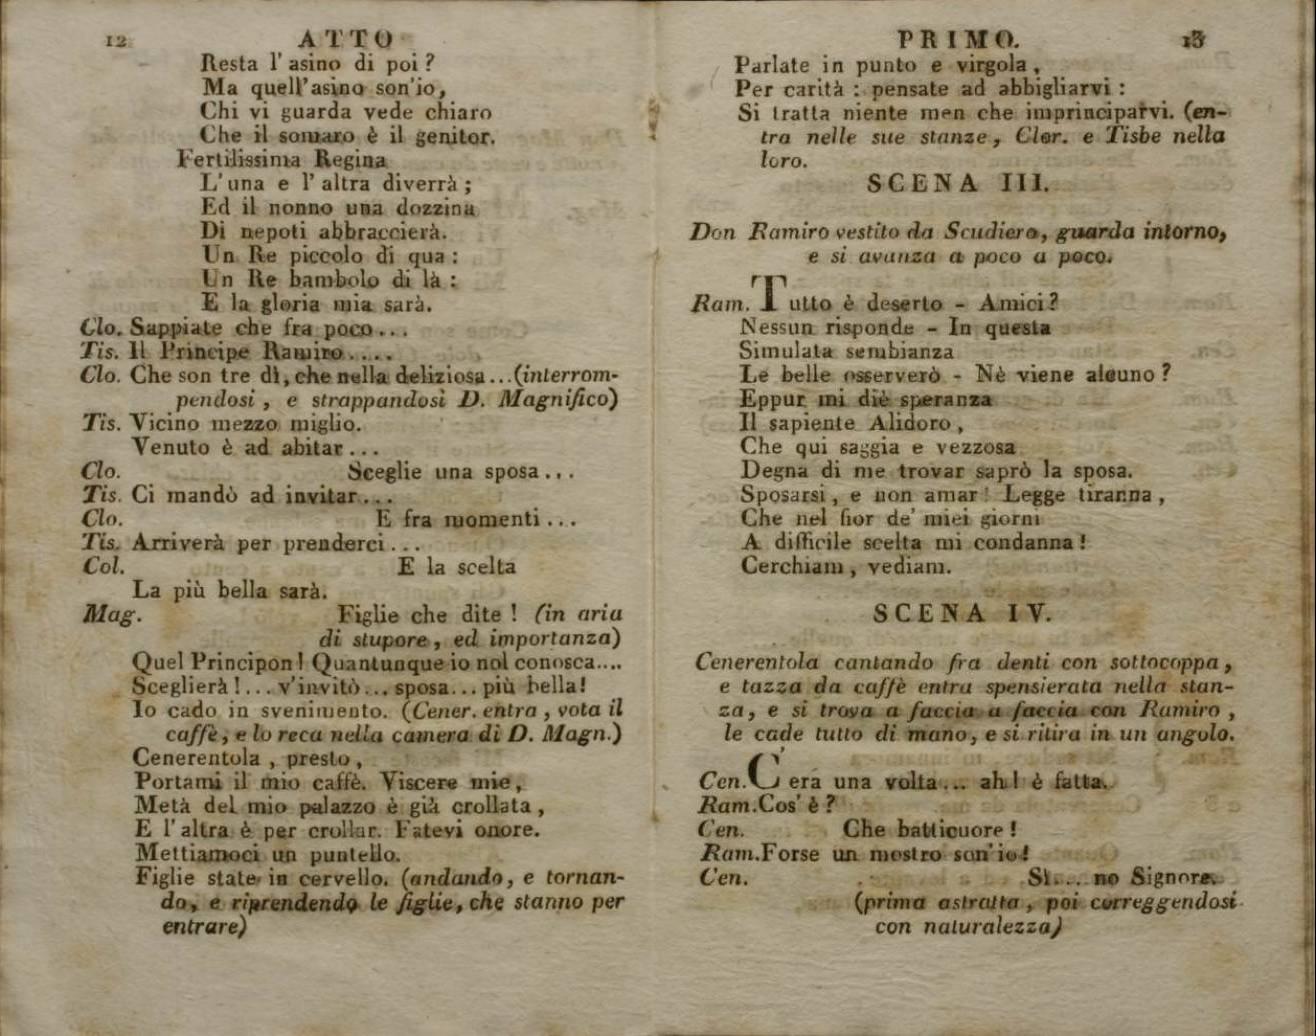 12 ATTO
Resta l' asino di poi?
Ma quell'asino son'io,
Chi vi guarda vede chiaro
Che il somaro è il genitor.
Fertilissima Regina
L'una e l' altra diverrà;
Ed il nonno una dozzina
Di nepoti abbraccierà.
Un Re piccolo di qua:
Un Re bambolo di là:
E la gloria mia sarà.
Clo. Sappiate che fra poco...
Tis. Il Principe Ramiro....
Clo. Che son tre dì, che nella deliziosa...(interrom-
pendosi, e strappandosi D. Magnifico)
Tis. Vicino mezzo miglio.
Venuto è ad abitar...
Clo. Sceglie una sposa...
Tis. Ci mandò ad invitar...
Clo. E fra momenti...
Tis. Arriverà per prenderci...
Col. E la scelta
La più bella sarà.
Mag. Figlie che dite! (in aria
di stupore, ed importanza)
Quel Principon! Quantunque io nol conosca....
Sceglierà!... v'invitò... sposa... più bella!
Io cado in svenimento. (Cener. entra, vota il
caffè, e lo reca nella camera di D. Magn.)
Cenerentola, presto,
Portami il mio caffè. Viscere mie,
Metà del mio palazzo è già crollata,
E l'altra è per crollar. Fatevi onore.
Mettiamoci un puntello.
Figlie state in cervello. (andando, e tornan-
do, e riprendendo le figlie, che stanno per
entrare)
PRIMO. 13
Parlate in punto e virgola,
Per carità: pensate ad abbigliarvi:
Si tratta niente men che imprinciparvi. (en-
tra nelle sue stanze, Clor. e Tisbe nella
loro.
SCENA III.
Don Ramiro vestito da Scudiero, guarda intorno,
e si avanza a poco a poco.
Ram. Tutto è deserto - Amici?
Nessun risponde - In questa
Simulata sembianza
Le belle osserverò - Nè viene alcuno?
Eppur mi diè speranza
Il sapiente Alidoro,
Che qui saggia e vezzosa
Degna di me trovar saprò la sposa.
Sposarsi, e non amar! Legge tiranna,
Che nel fior de' miei giorni
A difficile scelta mi condanna!
Cerchiam, vediam.
SCENA IV.
Cenerentola cantando fra denti con sottocoppa,
e tazza da caffè entra spensierata nella stan-
za, e si trova a faccia a faccia con Ramiro,
le cade tutto di mano, e si ritira in un angolo.
Cen. C'era una volta... ah! è fatta.
Ram. Cos' è?
Cen. Che batticuore!
Ram. Forse un mostro son'io!
Cen. Sì.... no Signore.
(prima astratta, poi correggendosi
con naturalezza)